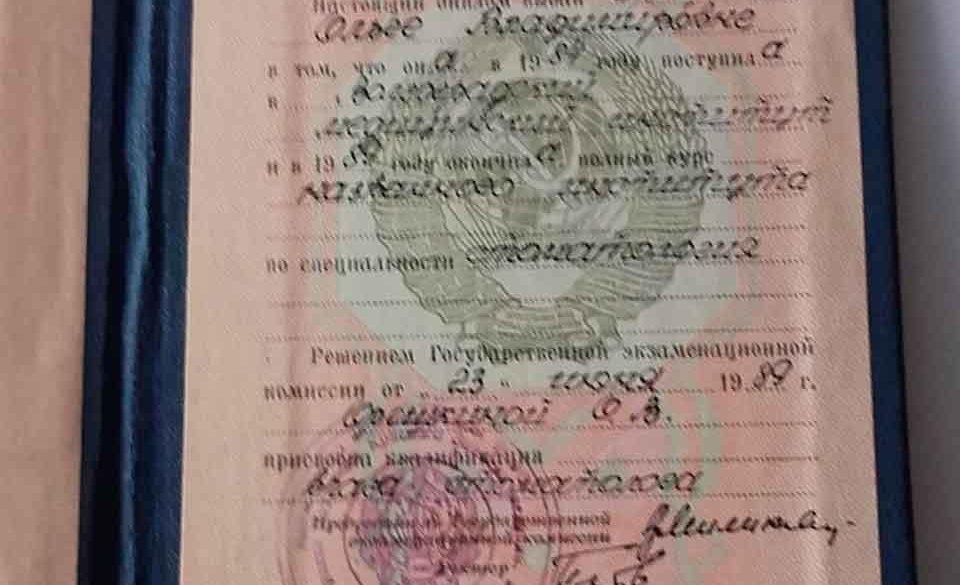 Настоящий диплом выдан
Ольге Владимировне
в том, что он а в 19 84 году поступил а
в Волгоградский
медицинский институт
и в 19 89 году окончил а полный курс
названного института
по специальности стоматология
Решением Государственной экзаменационной
комиссии от „ 23 “ июня 19 89 г.
О. В.
присвоена квалификация
врача стоматолога
Председатель Государственной
экзаменационной комиссии
Ректор